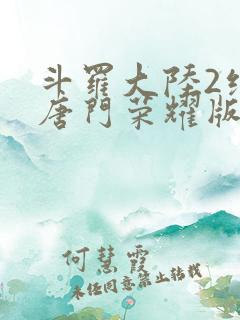 斗羅大陸2
唐門榮耀版
何慧霞
未经同意禁止转载